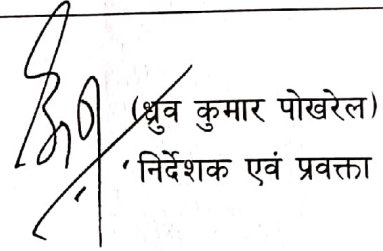 (ध्रुव कुमार पोखरेल)
निर्देशक एवं प्रवक्ता